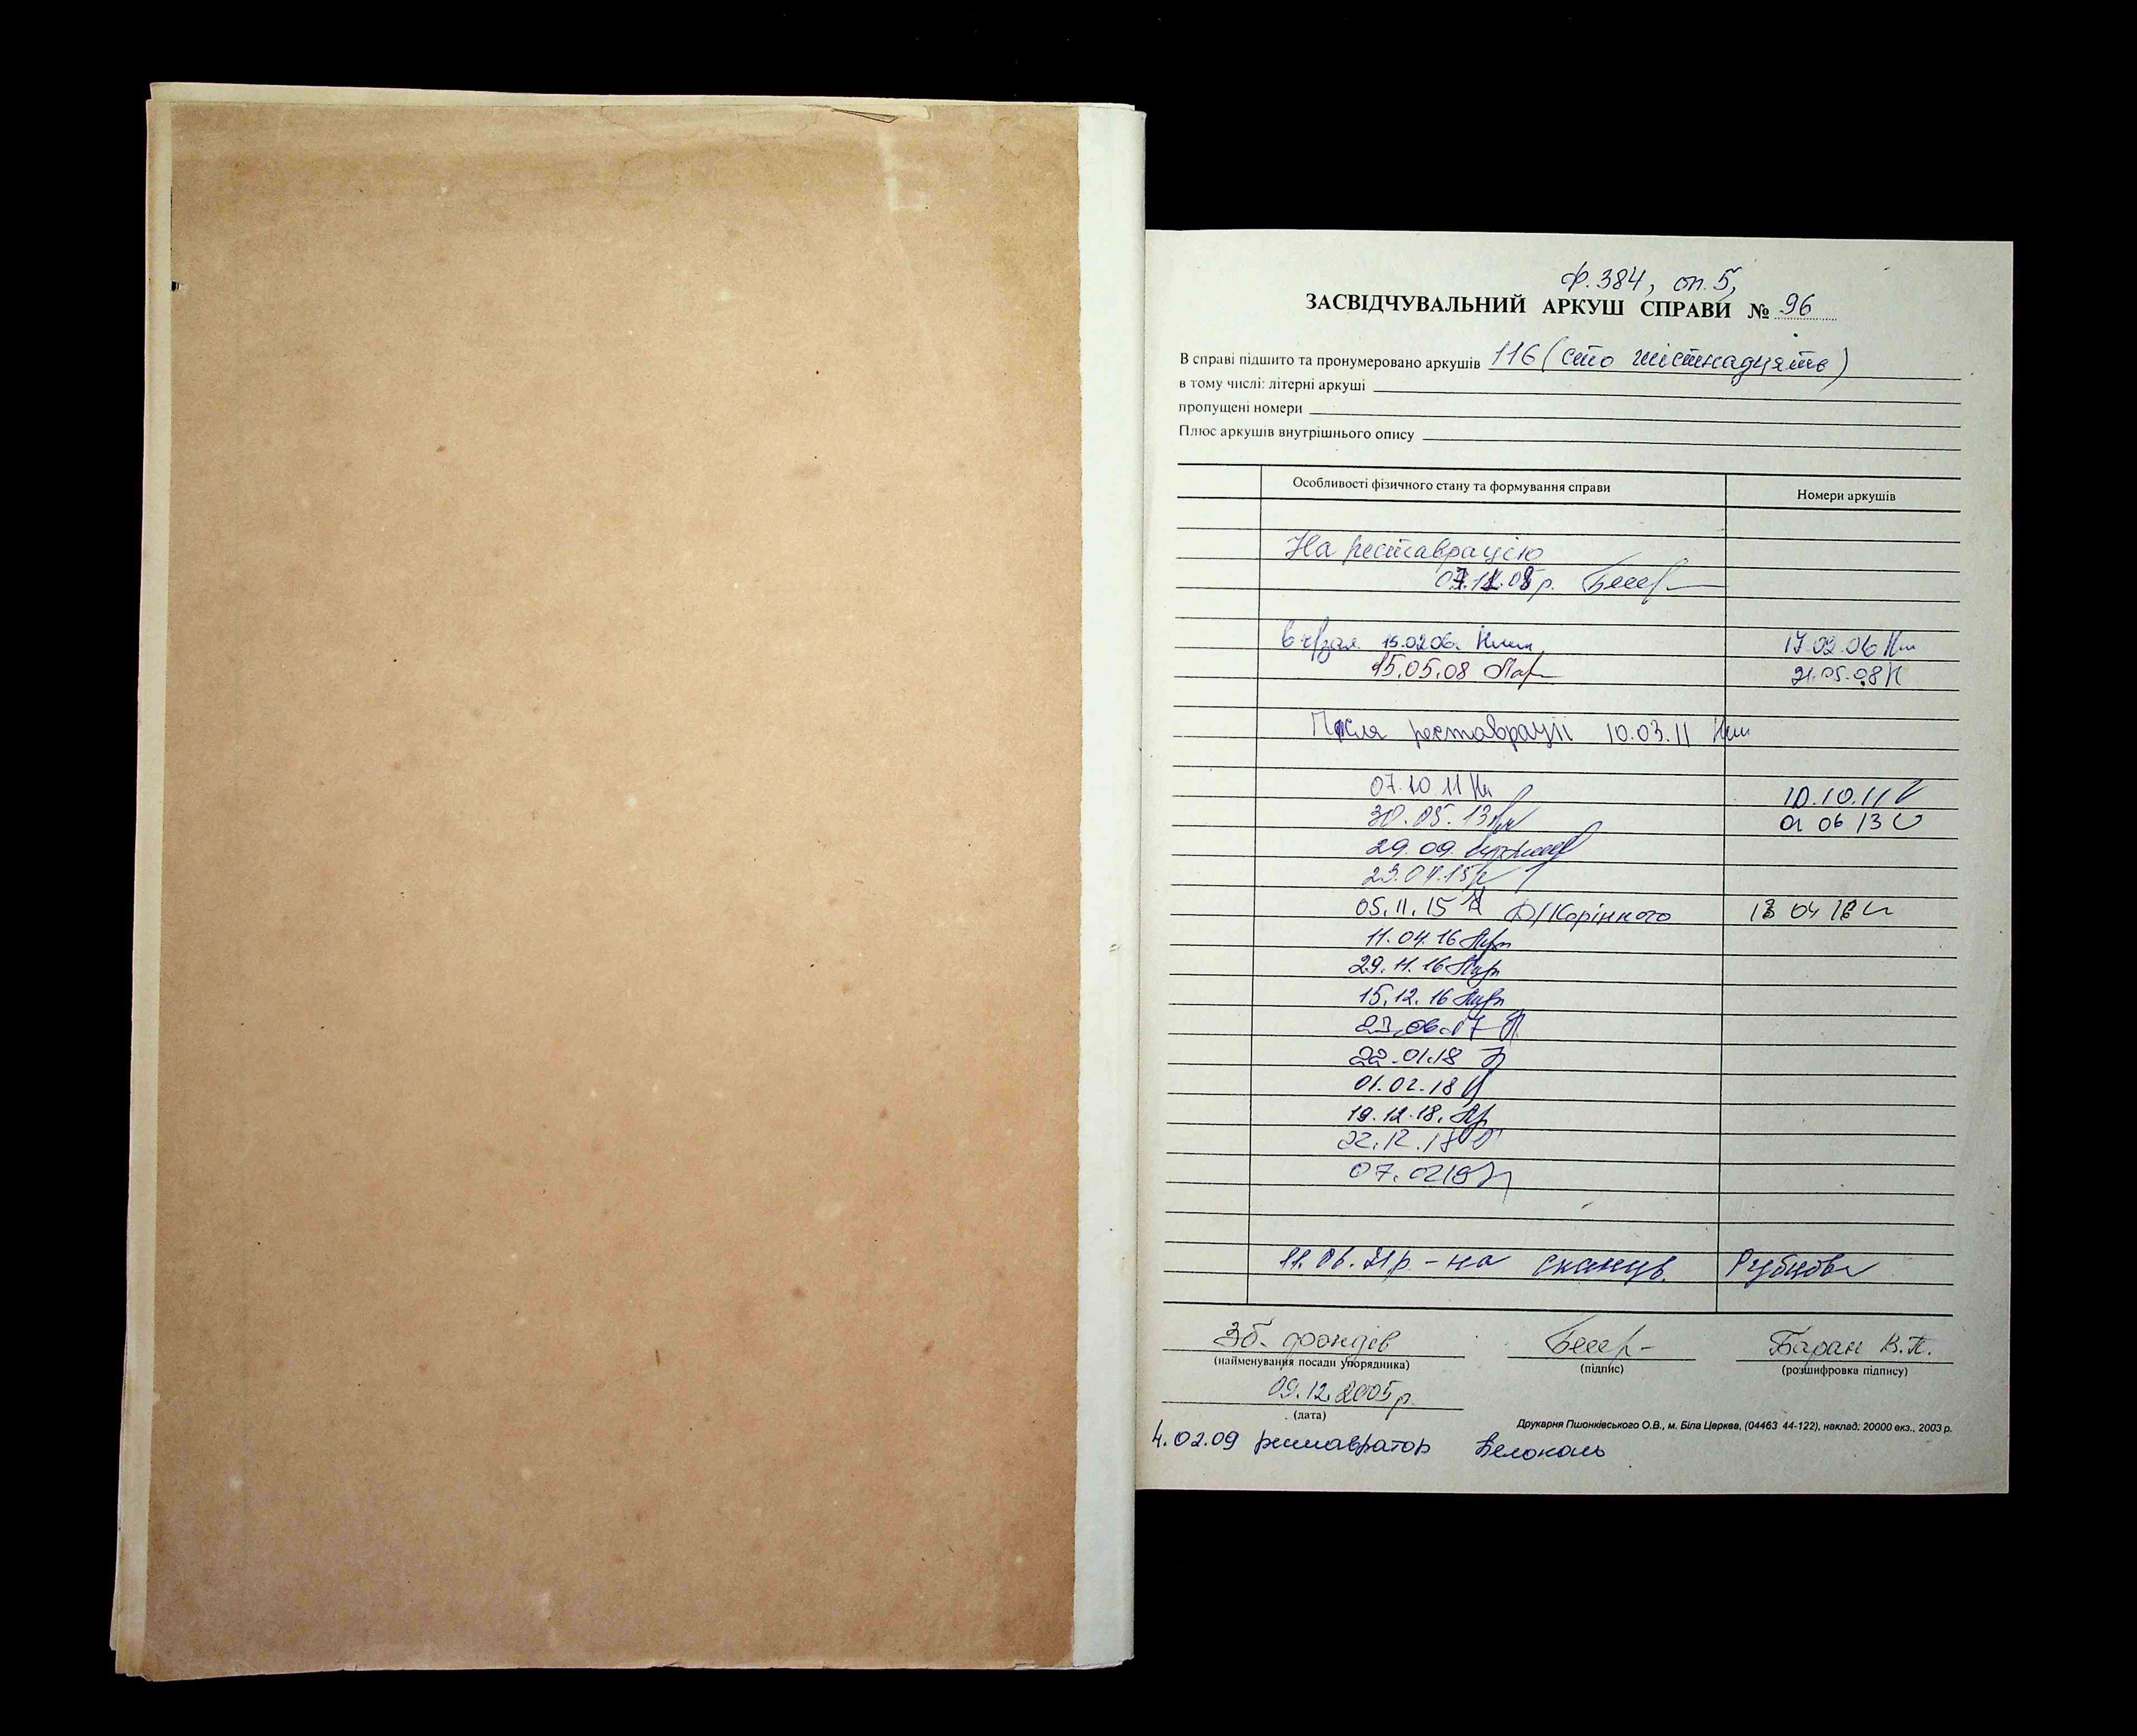 ф. 384, оп. 5,
ЗАСВІДЧУВАЛЬНИЙ АРКУШ СПРАВИ № 96
В справі підшито та пронумеровано аркушів 116 (сто шістнадцять)
в тому числі: літерні аркуші
пропущені номери
Плюс аркушів внутрішнього опису
Особливості фізичного стану та формування справи Номери аркушів
На реставрацію
15.02.06. 17.02.06
15.05.08 21.05.08
Після реставрації 10.03.11
07.10.11 10.10.11
30.05.13 01 06 13
29.09.
05.11.15
11.04.16
29.11.16
15.12.16
23.06.17
22.01.18
01.02.18
19.12.18.
22.12.18
07.0219
11.06.21р. - на сканув. Рубцова
Зб. фондів Баран В.П.
(найменування посади упорядника) (підпис) (розшифровка підпису)
09.12.2005р.
(дата)
Друкарня Пшонківського О.В., м. Біла Церква, (04463 44-122), наклад: 20000 екз., 2003 р.
4.02.09 реставратор